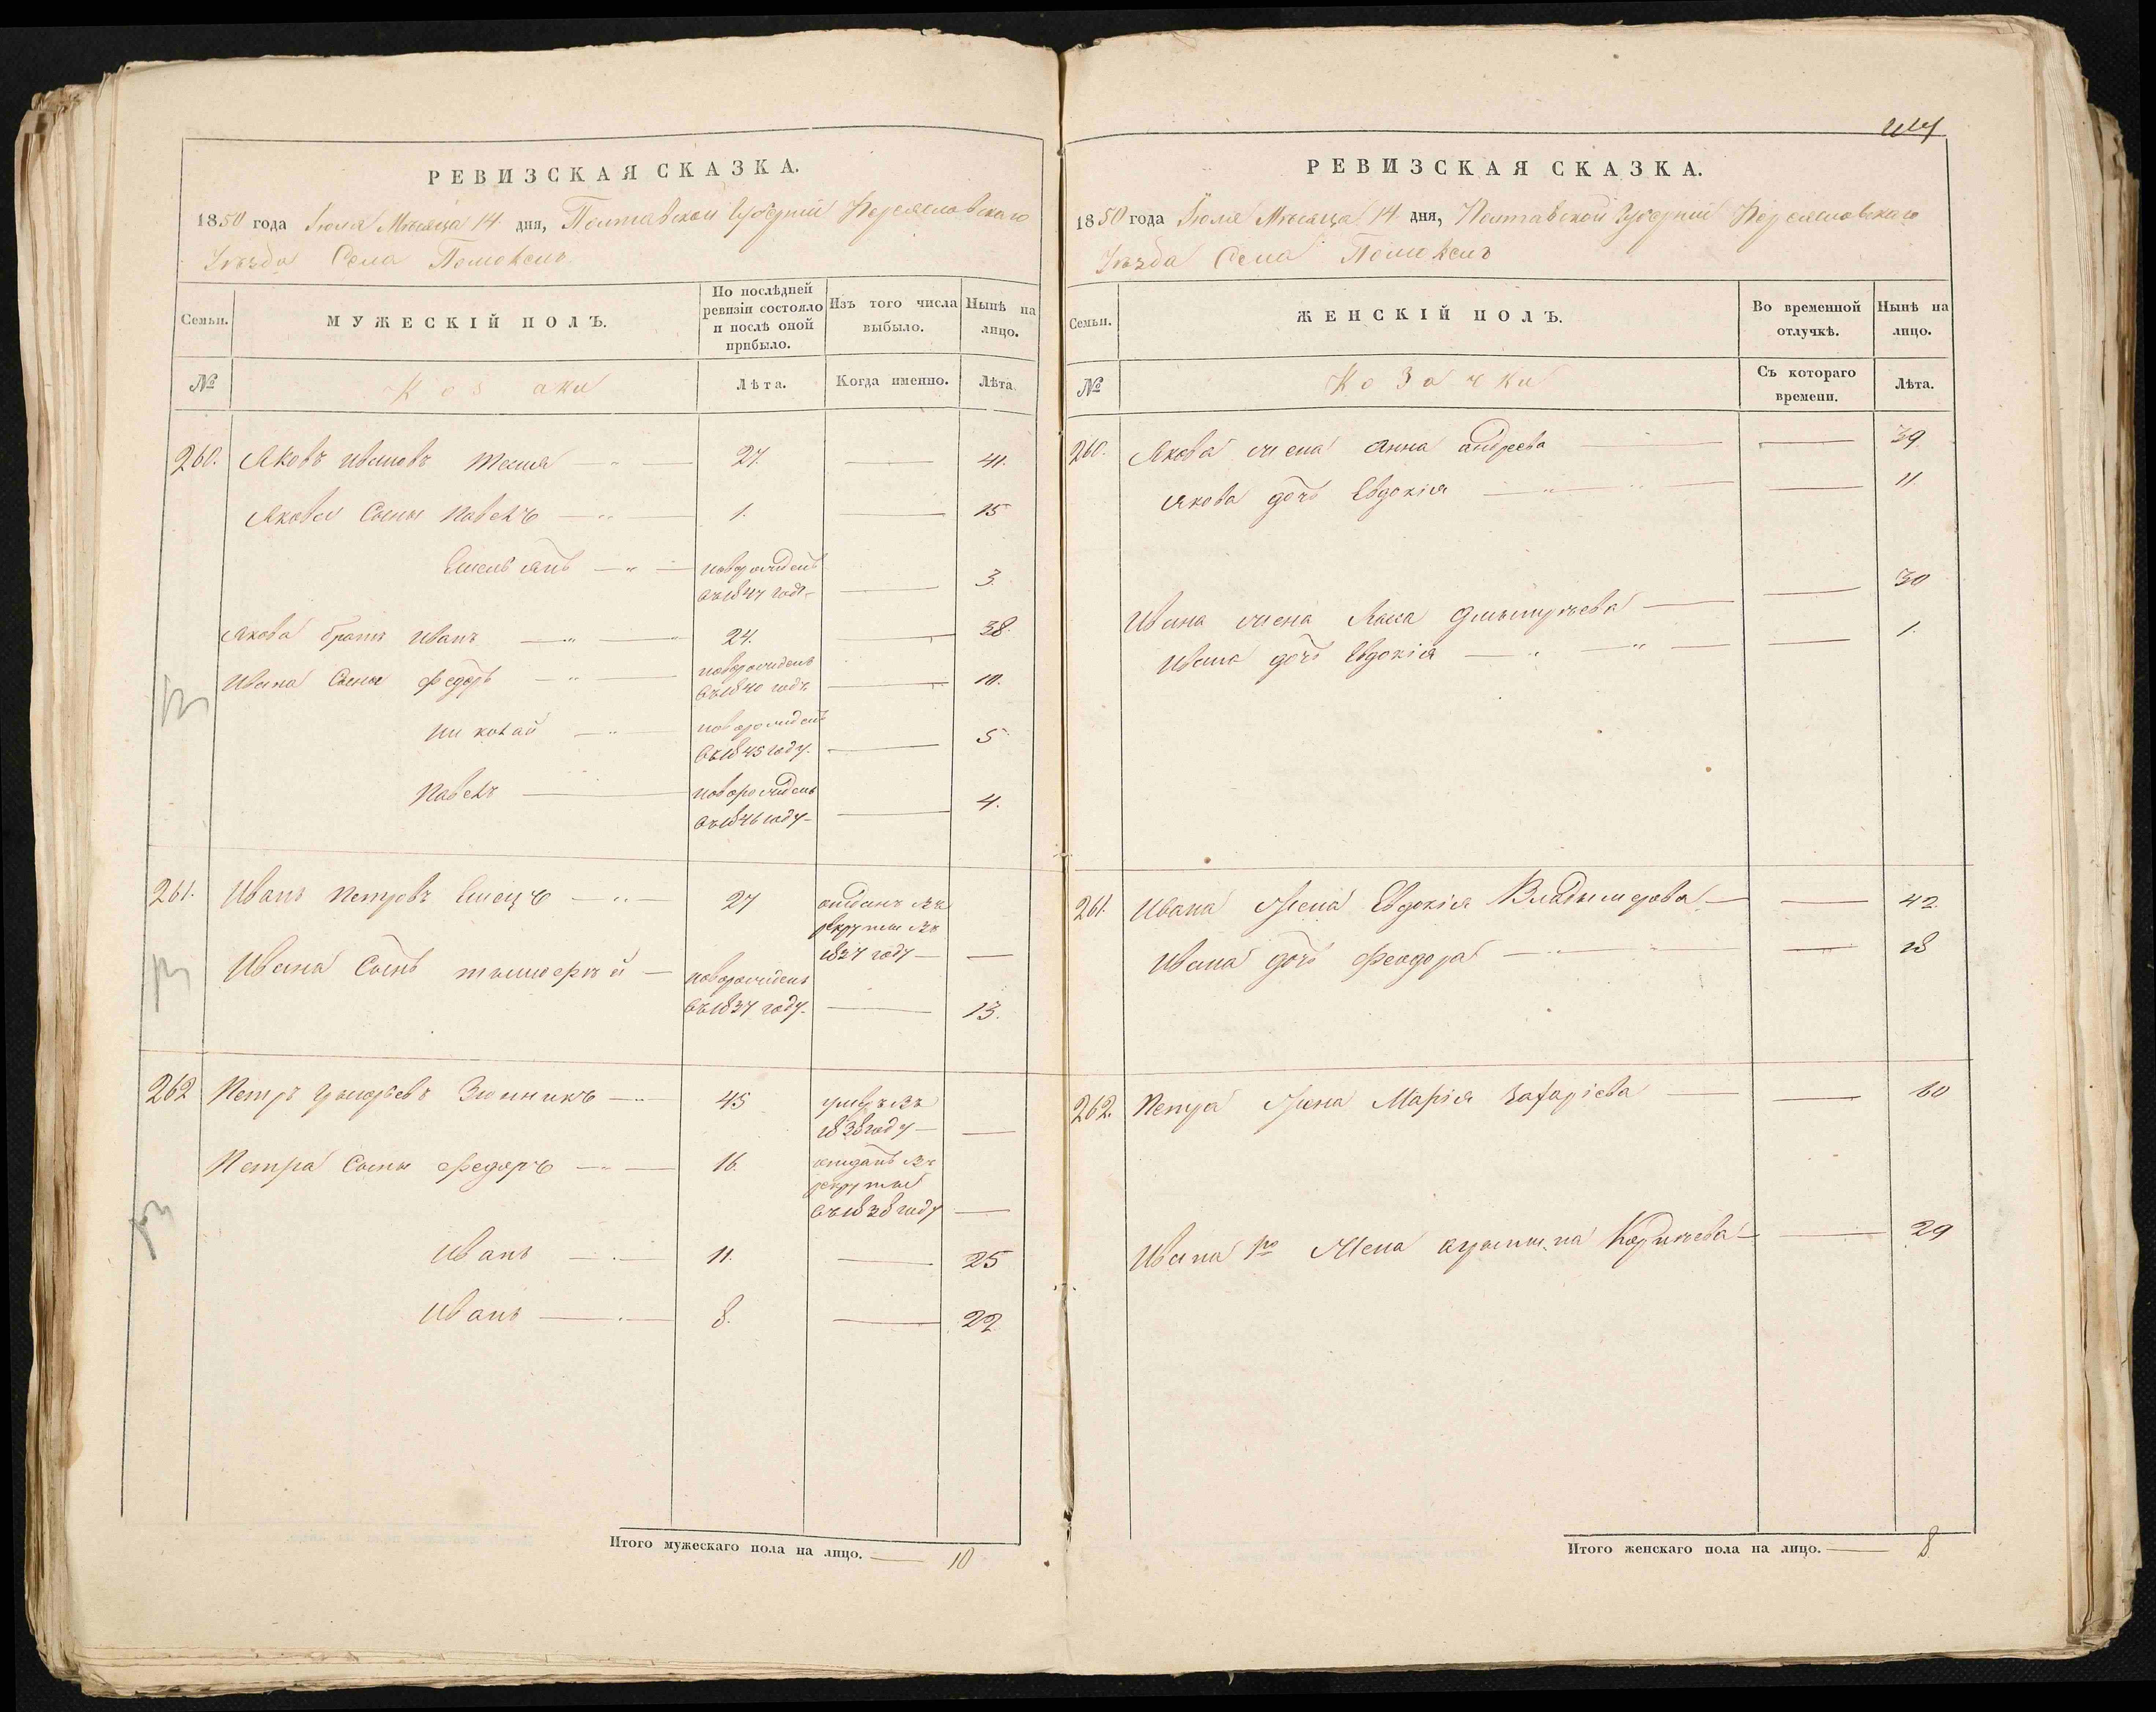 РЕВИЗСКАЯ СКАЗКА.
1850 года Іюля Мѣсяца 14 дня, Полтавской Губерніи Переяславскаго
Уѣзда Села Помоклей
Семьи.
МУЖЕСКІЙ ПОЛЪ.
По послѣдней ревизіи состояло и послѣ оной прибыло.
Изъ того числа выбыло.
Нынѣ на лицо.
№
Козаки
Лѣта.
Когда именно.
Лѣта.
260. Яковъ Ивановъ 27. 41.
Якова Сыны Павелъ 1. 15
Емельянъ новорожденъ въ 1847 годѣ 3.
Якова братъ Иванъ 24. 38.
Ивана Сыны Федоръ новорожденъ въ 1840 годѣ 10.
Николай новорожденъ въ 1845 году. 5
Павелъ новорожденъ въ 1846 году 4.
261. Иванъ Петровъ Емецъ 27 отданъ въ рекруты въ 1837 году
Ивана Сынъ тымофѣй новорожденъ въ 1837 году. 13.
262 Петръ Григорьевъ 45 умеръ въ 1838 году
Петра Сыны Федоръ 16. отданъ въ рекруты въ 1838 году
Иванъ 11. 25
Иванъ 8. 22
Итого мужескаго пола на лицо. 10
РЕВИЗСКАЯ СКАЗКА.
1850 года Іюля Мѣсяца 14 дня, Полтавской Губерніи Переяславскаго
Уѣзда Села Помоклей
Семьи.
ЖЕНСКІЙ ПОЛЪ.
Во временной отлучкѣ.
Нынѣ на лицо.
№
Козачки
Съ котораго времени.
Лѣта.
260. Якова жена Анна андреева 39
Якова дочь Евдокія 11
Ивана жена 30
Ивана дочь Евдокія 1.
261. Ивана Жена Евдокія Владымерова 42.
Ивана дочь Феодора 18
262. Петра Жена Марія Захаріева 60
Ивана 1го Жена 29
Итого женскаго пола на лицо. 8